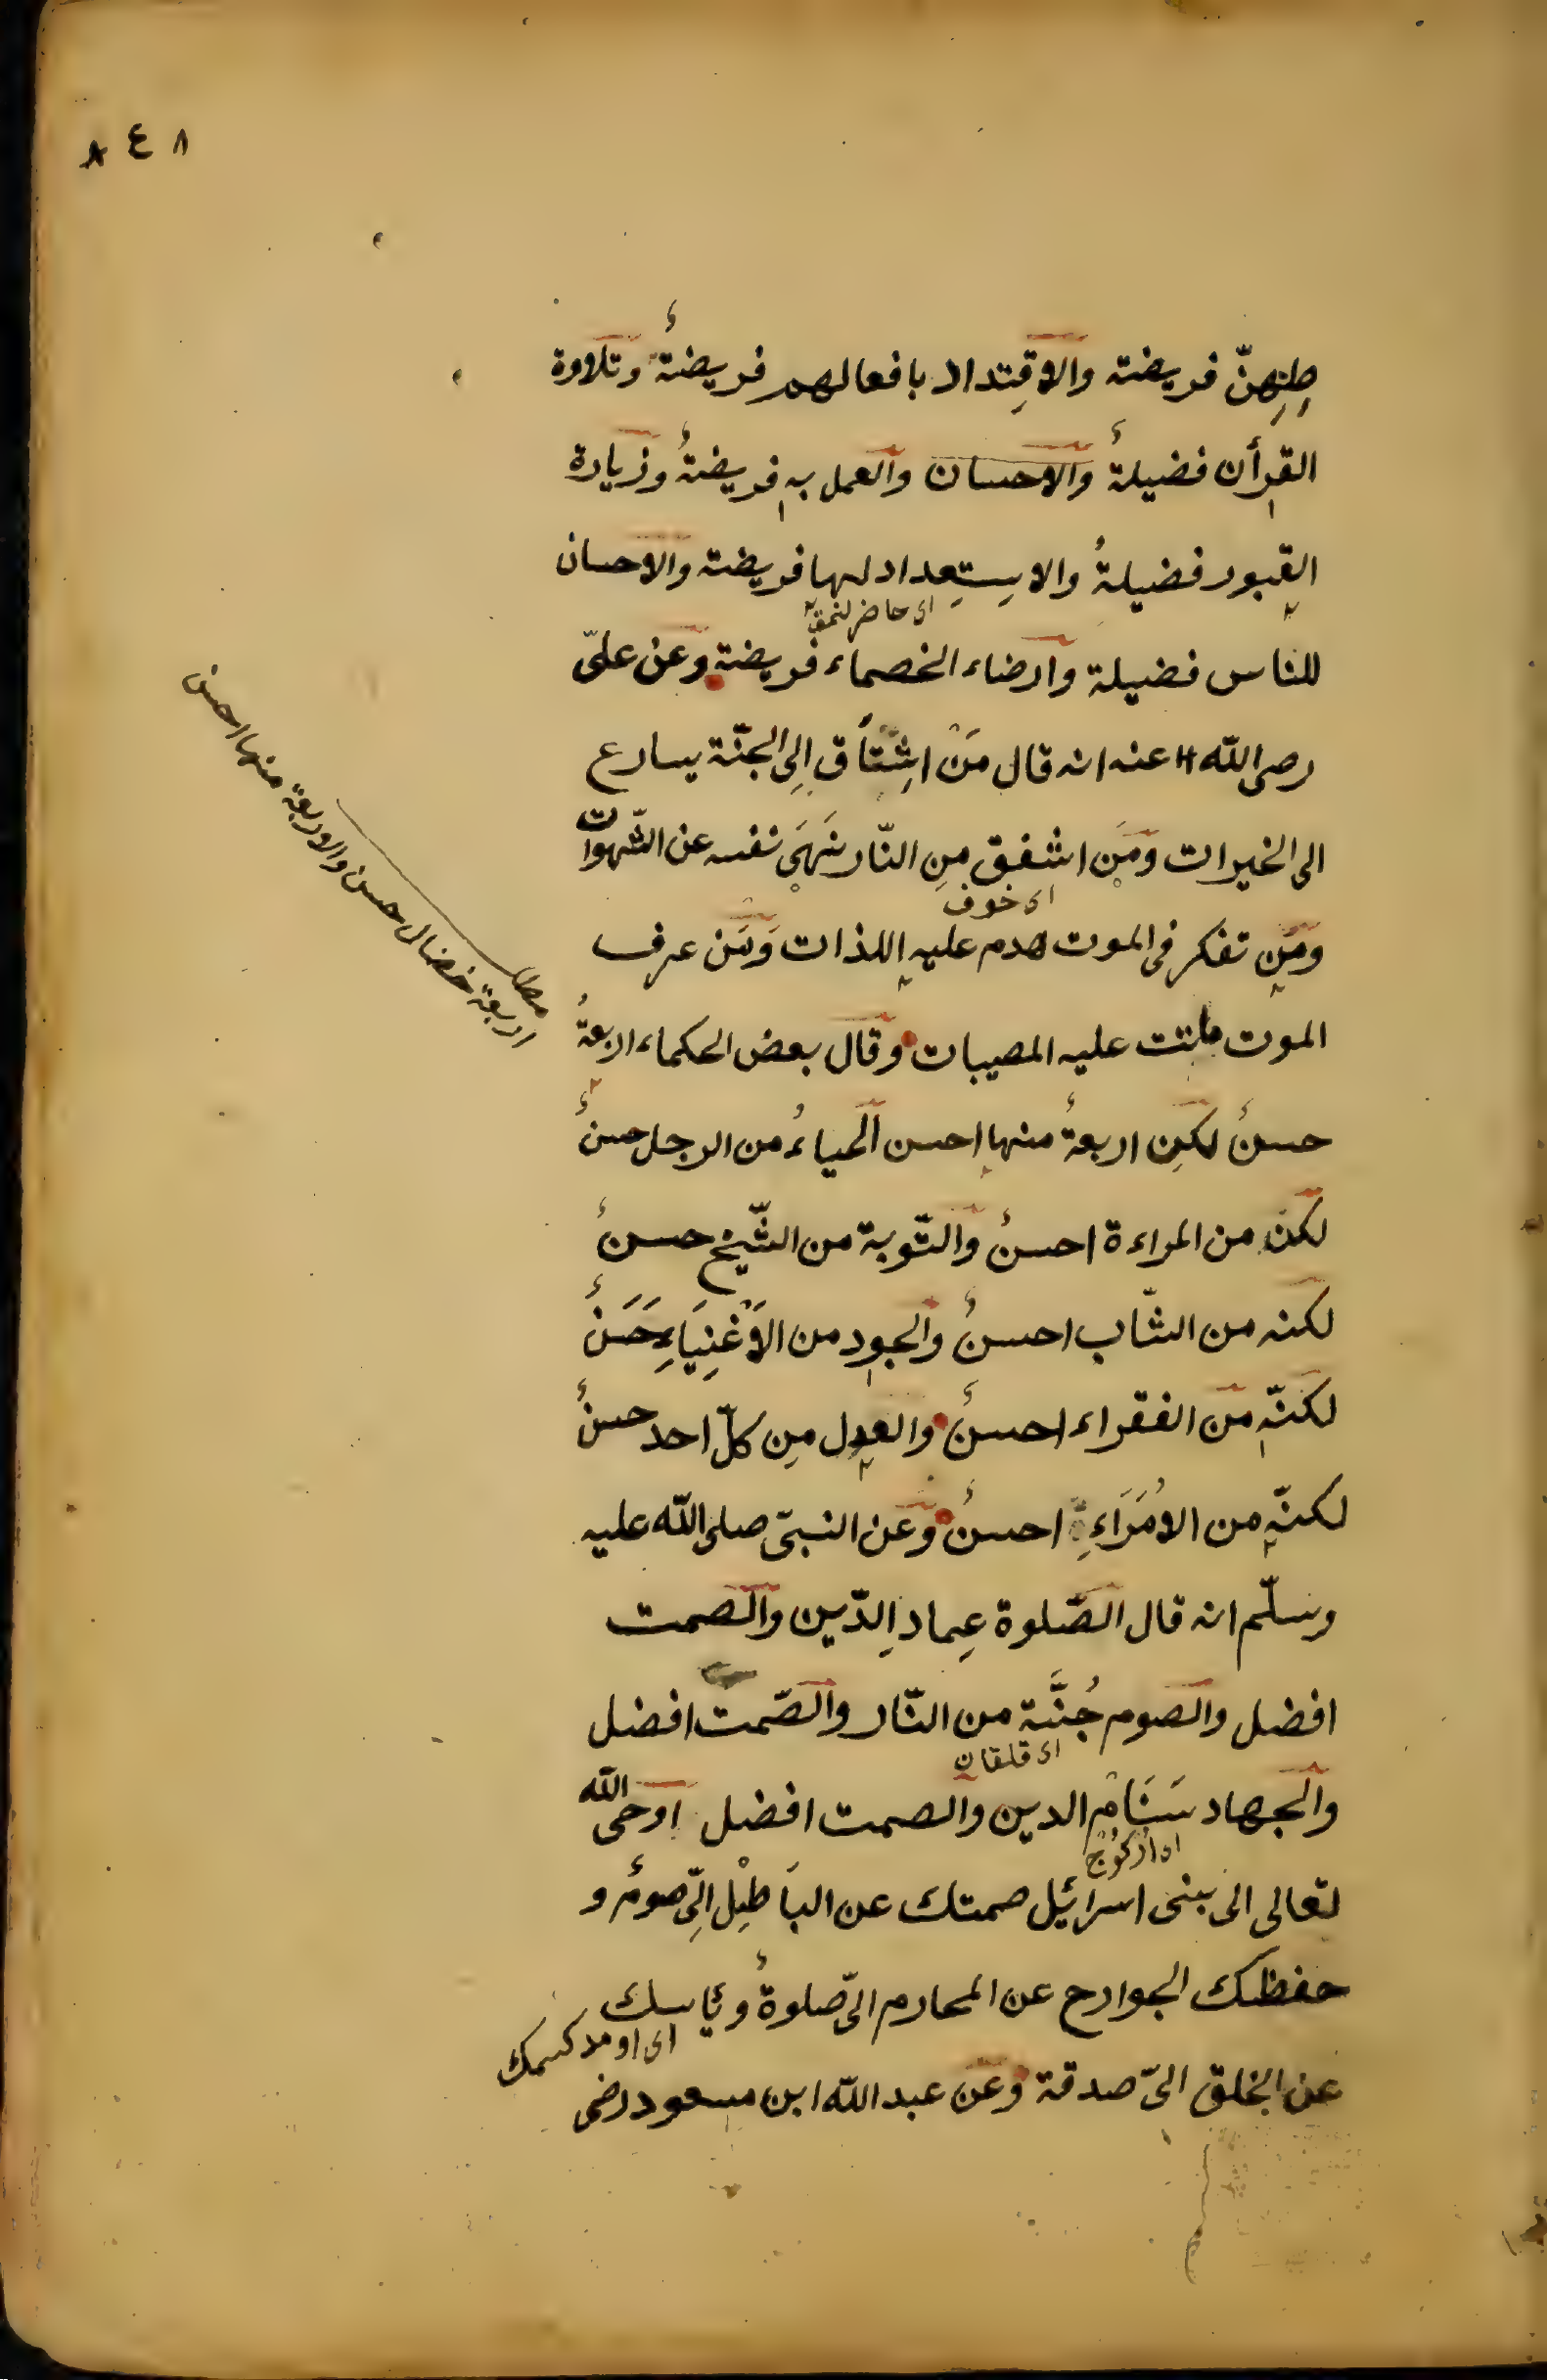 ٨ ٤ ٨
طنهنّ فريضة والاقتداء بافعالهم فريضةٌ وتلاوة
القرأن فضيلةٌ والاحسان والعمل به فريضةٌ وزيارة
القبور فضيلةٌ والاستعداد لها فريضة والاحسان
للناس فضيلة وارضاء الخصماء فريضة وعن علىّ
رضى اللّه عنه انه قال مَنْ اشْتَاق اِلى الجنّة يسارع
الى الخيرات ومَن اشفق مِن النّار نَهَى نفسه عن الشّهوات
اى خوف
ومَن تفكر فى الموت هدم عليه اللذات وَمَن عرف
الموت هانت عليه المصيبات وقال بعض الحكماء اربعةٌ
حسنٌ لكِن اربعةٌ منها احسن الحياءُ من الرجل حسنٌ
لكن من المراءة احسنٌ والتّوبة من الشّيخ حسنٌ
لكنه من الشّاب احسنٌ والجود من الاَغْنِيَاءِ حَسَنٌ
لكنّه من الفقراء احسنٌ والعدل مِن كلّ احد حسنٌ
لكنّه من الاُمَرَاءِ احسنٌ وعن النبىّ صلى اللّه عليه
وسلّم انه قال الصّلوة عِماد الدّين والصمت
افضل والصوم جُنَّة من النّار والصّمت افضل
اى قلقان
والجهاد سَنَامُ الدين والصمت افضل اوحى اللّه
تعالى الى بنى اسرائيل صمتك عن البَاطِل اِلىّ صومٌ و
حفظك الجوارح عن المحارم الىّ صلوةٌ وياسك
اى اومد كسمك
عن الخلق الىّ صدقة وعن عبد اللّه ابن مسعود رضى
مطلب
اربعة خصال حسن والاربعة منها احسن